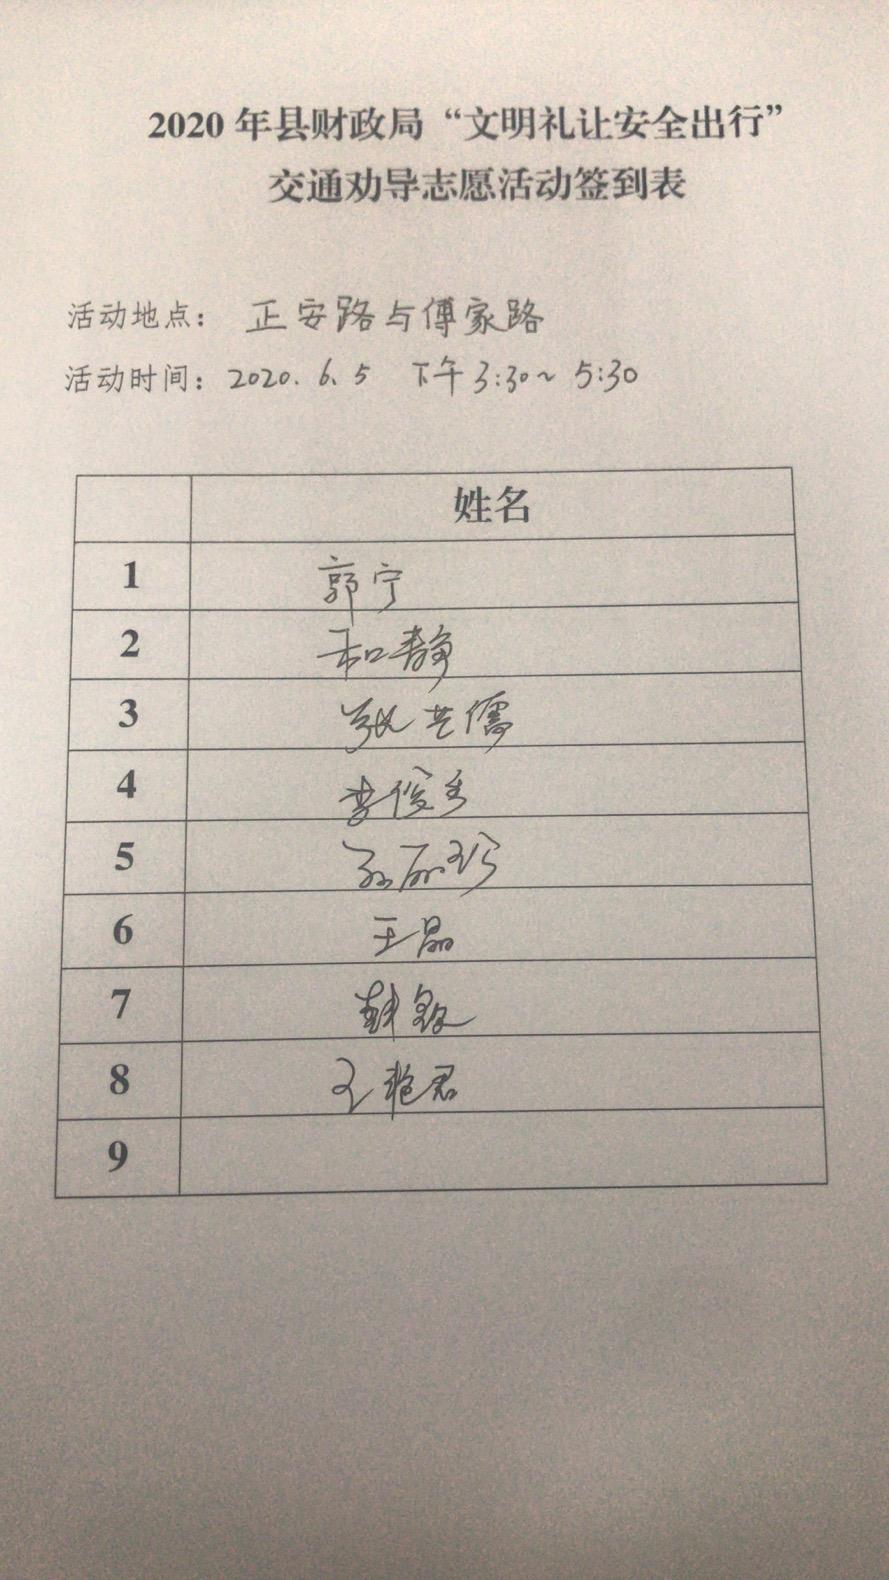 2020 年县财政局“文明礼让安全出行”
交通劝导志愿活动签到表
活动地点： 正安路与傅家路
活动时间：2020.6.5 下午3:30~5:30
姓名
1 郭宁
2 和静
3 张艺儒
4 李俊秀
5 孙丽珍
6 王晶
7 韩毅
8 王艳君
9